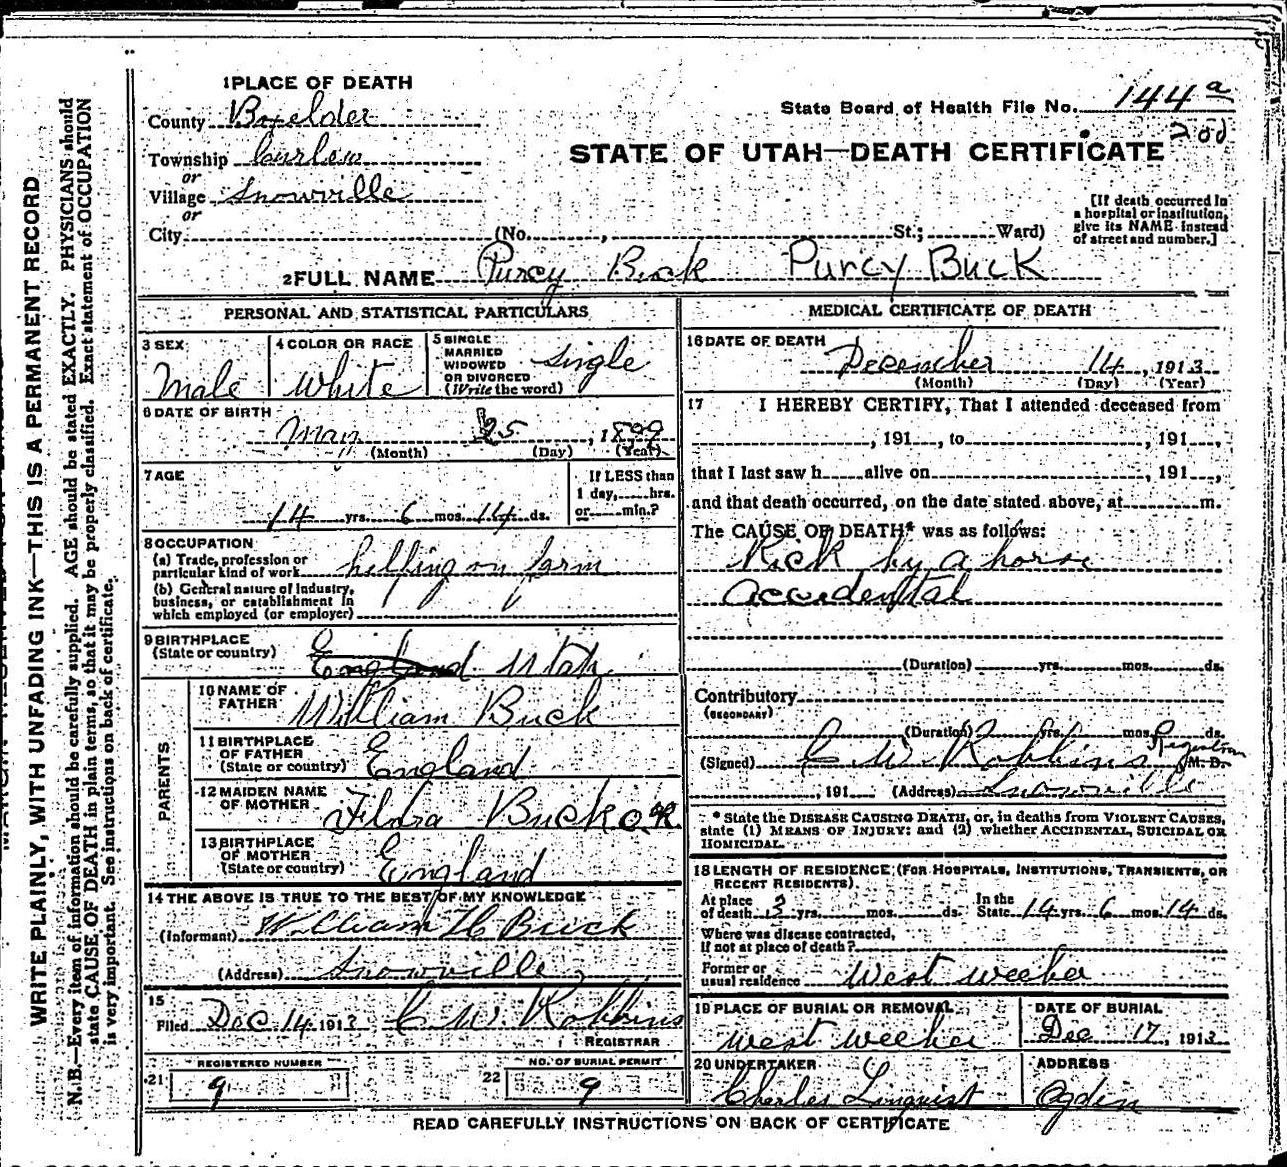 1 PLACE OF DEATH
County Boxelder
Township Curlew
or
Village Snowville
or
City (No. , St.; Ward)
State Board of Health File No. 144 a
200
STATE OF UTAH—DEATH CERTIFICATE
[If death occurred in
a hospital or institution,
give its NAME instead
of street and number.]
2 FULL NAME Purcy Buck Purcy Buck
PERSONAL AND STATISTICAL PARTICULARS
3 SEX
Male
4 COLOR OR RACE
White
5 SINGLE
MARRIED
WIDOWED
OR DIVORCED
(Write the word)
Single
6 DATE OF BIRTH
May 25, 1899
(Month) (Day) (Year)
7 AGE
14 yrs. 6 mos. 14 ds.
If LESS than
1 day, hrs.
or min.?
8 OCCUPATION
(a) Trade, profession or
particular kind of work helping on farm
(b) General nature of industry,
business, or establishment in
which employed (or employer)
9 BIRTHPLACE
(State or country) England Utah
PARENTS
10 NAME OF
FATHER William Buck
11 BIRTHPLACE
OF FATHER
(State or country) England
12 MAIDEN NAME
OF MOTHER Flora Buck
13 BIRTHPLACE
OF MOTHER
(State or country) England
14 THE ABOVE IS TRUE TO THE BEST OF MY KNOWLEDGE
(Informant) William H Buck
(Address) Snowville
15
Filed Dec 14 1913 C. W. Robbins
REGISTRAR
REGISTERED NUMBER
21 9
NO. OF BURIAL PERMIT
22 9
MEDICAL CERTIFICATE OF DEATH
16 DATE OF DEATH
December 14, 1913
(Month) (Day) (Year)
17 I HEREBY CERTIFY, That I attended deceased from
, 191 , to , 191 ,
that I last saw h alive on , 191 ,
and that death occurred, on the date stated above, at m.
The CAUSE OF DEATH* was as follows:
Kick by a horse
accidental
(Duration) yrs. mos. ds.
Contributory
(SECONDARY)
(Duration) yrs. mos. ds.
(Signed) C. W. Robbins Registrar M. D.
, 191 (Address) Snowville
* State the DISEASE CAUSING DEATH, or, in deaths from VIOLENT CAUSES,
state (1) MEANS OF INJURY; and (2) whether ACCIDENTAL, SUICIDAL OR
HOMICIDAL.
18 LENGTH OF RESIDENCE (FOR HOSPITALS, INSTITUTIONS, TRANSIENTS, OR
RECENT RESIDENTS).
At place
of death 3 yrs. mos. ds. In the
State 14 yrs. 6 mos. 14 ds.
Where was disease contracted,
If not at place of death?
Former or
usual residence West weeber
19 PLACE OF BURIAL OR REMOVAL
West weeber
DATE OF BURIAL
Dec 17, 1913
20 UNDERTAKER
Charles Linquist
ADDRESS
Ogden
READ CAREFULLY INSTRUCTIONS ON BACK OF CERTIFICATE
WRITE PLAINLY, WITH UNFADING INK—THIS IS A PERMANENT RECORD
N. B.—Every item of information should be carefully supplied. AGE should be stated EXACTLY. PHYSICIANS should
state CAUSE OF DEATH in plain terms, so that it may be properly classified. Exact statement of OCCUPATION
is very important. See instructions on back of certificate.